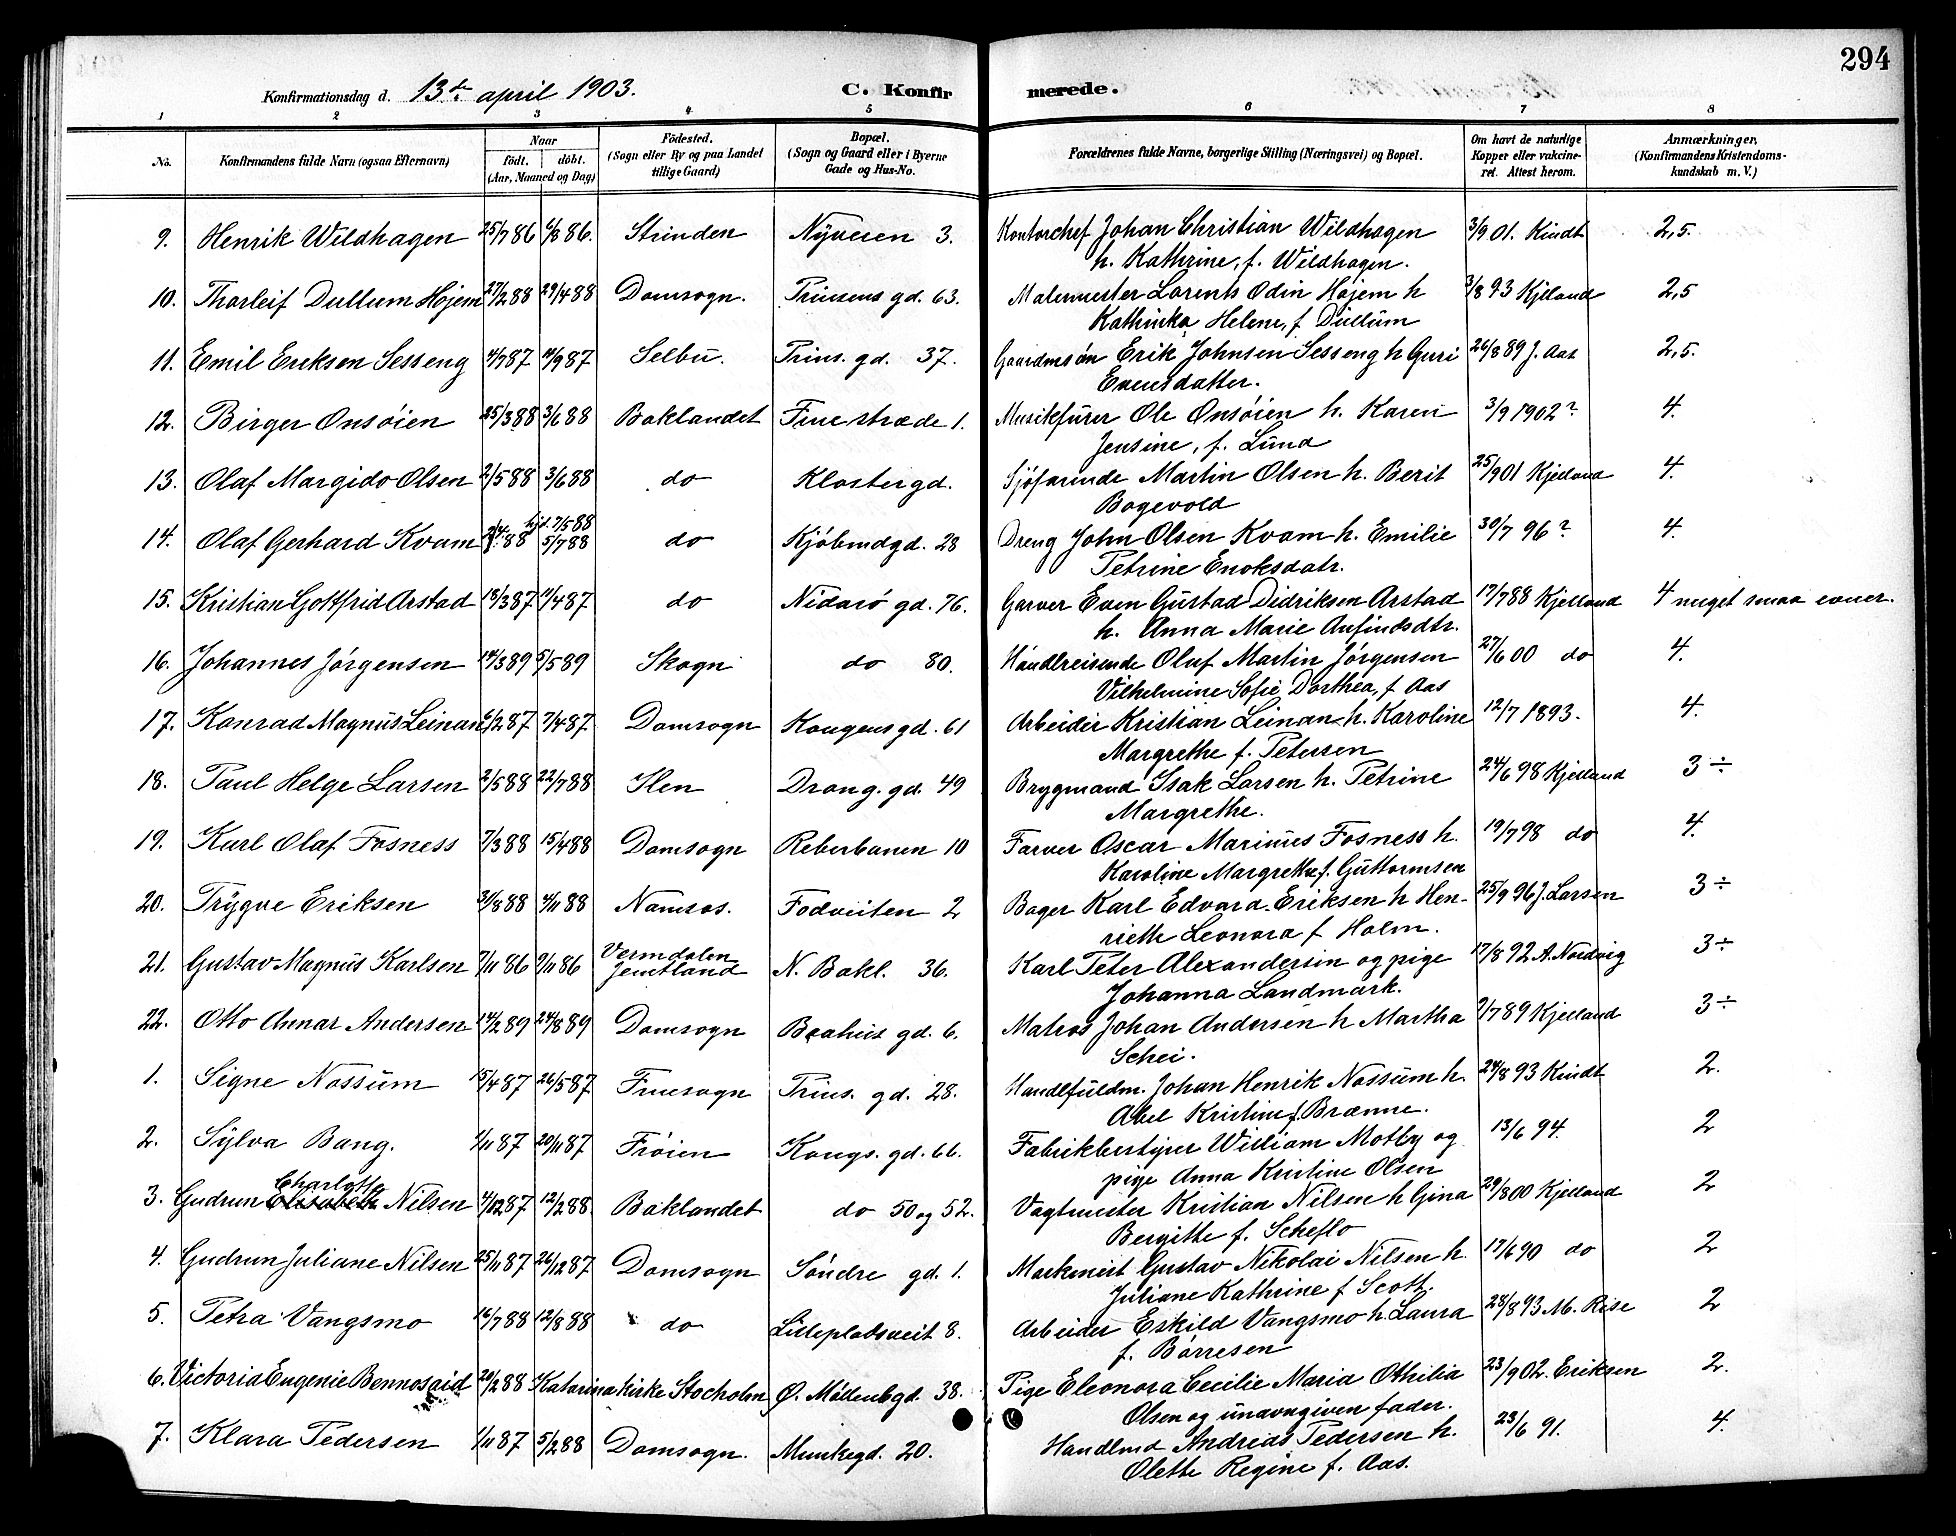 294
Konfirmationsdag d. 13de april 1903. C. Konfirmerede.
1 2 3 4 5 6 7 8
No. Konfirmandens fulde Navn (ogsaa Efternavn) Naar født. døbt. (Aar, Maaned og Dag) Födested. (Sogn eller By og paa Landet tillige Gaard) Bopæl. (Sogn og Gaard eller i Byerne Gade og Hus-No. Forældrenes fulde Navne, borgerlige Stilling (Næringsvei) og Bopæl. Om havt de naturlige Kopper eller vakcineret. Attest herom. Anmærkninger, (Konfirmandens Kristendomskundskab m. V.)
9. Henrik Wildhagen 25/7 86 6/8 86. Strinden Nyveien 3. Kontorchef Johan Christian Wildhagen 3/9 01. Kindt 2,5.
h. Kathrine, f. Wildhagen.
10. Thorleif Dullum Hojem 27/2 88 29/4 88 Domsogn. Prinsens gd. 63. Malermester Lorents Odin Højem h 3/8 93 Kjelland 2,5
Kathinka Helene, f Dullum
11. Emil Eriksen Sesseng 4/7 87 11/9 87 Selbu. Prins. gd. 37. Gaardmsøn Erik Johnsen Sesseng h Guri 26/8 89 J. Aas 2,5.
Evensdatter.
12. Birger Onsøien 25/3 88 3/6 88 Baklandet Frue stræde 1. Musikfürer Ole Onsøien h. Karen 3/9 1902? 4.
Jensine, f. Lund
13. Olaf Margido Olsen 2/5 88 3/6 88 do Klostergd. Sjöfarende Martin Olsen h. Berit 25/9 01 Kjelland 4.
Bogevold
14. Olaf Gerhard Kvam 2/4 88 hjd. 7/5 88 5/7 88 do Kjöbmdgd. 28 Dreng John Olsen Kvam h. Emilie 30/7 96? 4.
Petrine Enoksdatr.
15. Kristian Gottfrid Arstad 13/3 87 11/4 87 do Nidarö gd. 76. Garver Even Gustad Didriksen Arstad 17/7 88 Kjelland 4 meget smaa evner.
h. Anna Marie Anfindsdtr.
16. Johannes Jörgensen 14/3 89 5/5 89 Skogn do 80. Handlreisende Oluf Martin Jörgensen 27/6 00 do 4.
Vilhelmine Sofie Dorthea, f Aas
17. Konrad Magnus Leinan 6/2 87 7/4 87 Domsogn Kongensgd. 61 Arbeider Kristian Leinan h. Karoline 12/7 1893. 4.
Margrethe f. Petersen
18. Paul Helge Larsen 2/5 88 22/7 88 Ilen Drong. gd. 49 Brygmand Isak Larsen h. Petrine 24/6 98 Kjelland 3÷
Margrethe.
19. Karl Olaf Fosness 7/3 88 15/4 88 Domsogn Reberbanen 10 Farver Oscar Marinus Fosness h. 19/7 98 do 4.
Karoline Margrethe f. Guttormsen
20. Trygve Eriksen 31/8 88 4/11 88 Namsos. Fodveiten 2 Bager Karl Edvard Eriksen h Hen- 25/9 96 J. Larsen 3÷
riette Leonora f Holm.
21. Gustav Magnus Karlsen 7/11 86 9/11 86 Vermdalen Jemtland N. Bakl. 36. Karl Peter Alexandersen og pige 17/8 92 A. Nordvig 3÷
Johanna Landmark.
22. Otto Annar Andersen 14/2 89 24/8 89 Domsogn Baahus gd. 6. Matros Johan Andersen h Martha 9/7 89 Kjelland 3÷
Schei.
1. Signe Nossum 15/4 87 26/5 87 Fruesogn Prins. gd. 28. Handlfuldm. Johan Henrik Nossum h. 24/8 93 Kindt 2.
Abel Kristine f. Brænne.
2. Sylva Bang. 1/11 87 20/11 87 Fröien Kongs. gd. 66. Fabrikbestyrer William Motby og 13/6 94. 2
pige Anna Kristine Olsen
3. Gudrun Charlotte Elisabeth Nilsen 4/12 87 12/2 88. Baklandet do 50 og 52. Vagtmester Kristian Nilsen h Gina 29/8 00 Kjelland 2
Bergithe f. Scheflo
4. Gudrun Juliane Nilsen 25/11 87 26/12 87 Domsogn Söndre gd. 1. Gustav Nikolai Nilsen h. 17/6 90 do 2
Juliane Kathrine f Scott.
5. Petra Vangsmo 16/7 88 12/8 88 do Lilleplodsveit 8. Arbeider Eskild Vangsmo h. Laura 28/8 93 M. Rise 2
f. Börresen
6. Victoria Eugenie Bennosaid 20/2 88 Katarina kirke Stocholm Ø. Möllenbgd. 38. Pige Eleonora Cecilie Maria Othilia 23/9 02. Eriksen 2.
Olsen og unavngiven fader.
7. Klara Pedersen 1/11 87 5/2 88 Domsogn. Munkegd. 20. Handlmd Andreas Pedersen h. 23/6 91. 4.
Olette Regine f. Aas.